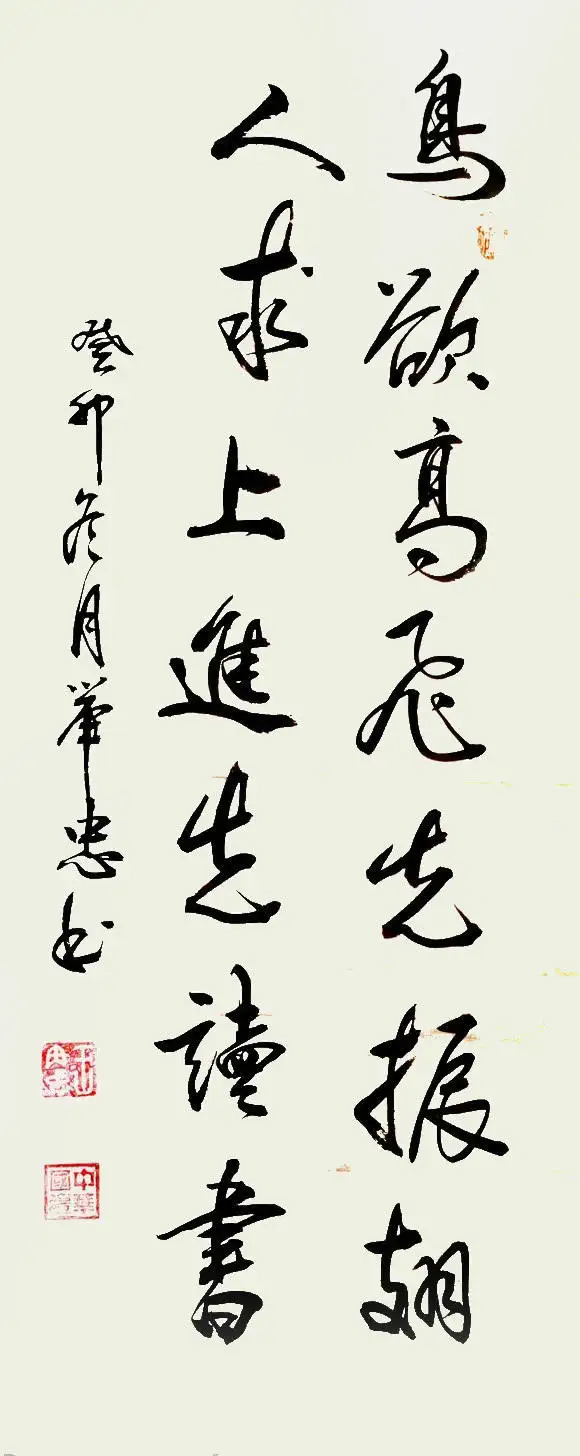 鳥欲高飛先振翅
人求上進先讀書
癸卯冬月華忠书
中華